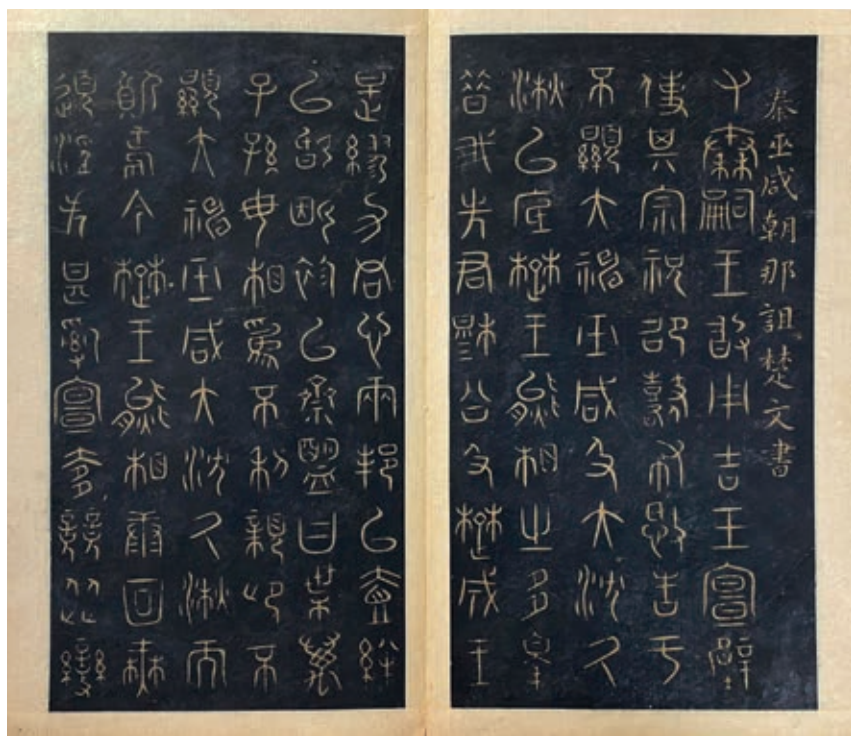 秦巫咸朝那詛楚文書
又秦嗣王敢用吉玉宣璧
使其宗祝邵鼛布愍告于
不顯大神巫咸及大沈久
湫以底楚王熊相之多辠
昔我先君穆公及楚成王
是繆力同心兩邦以壹絆
以婚姻袗以齋盟曰葉萬
子孫毋相為不利親卬不
顯大神巫咸大沈久湫而
質焉今楚王熊相康回無
道淫失甚亂宣侈競從變